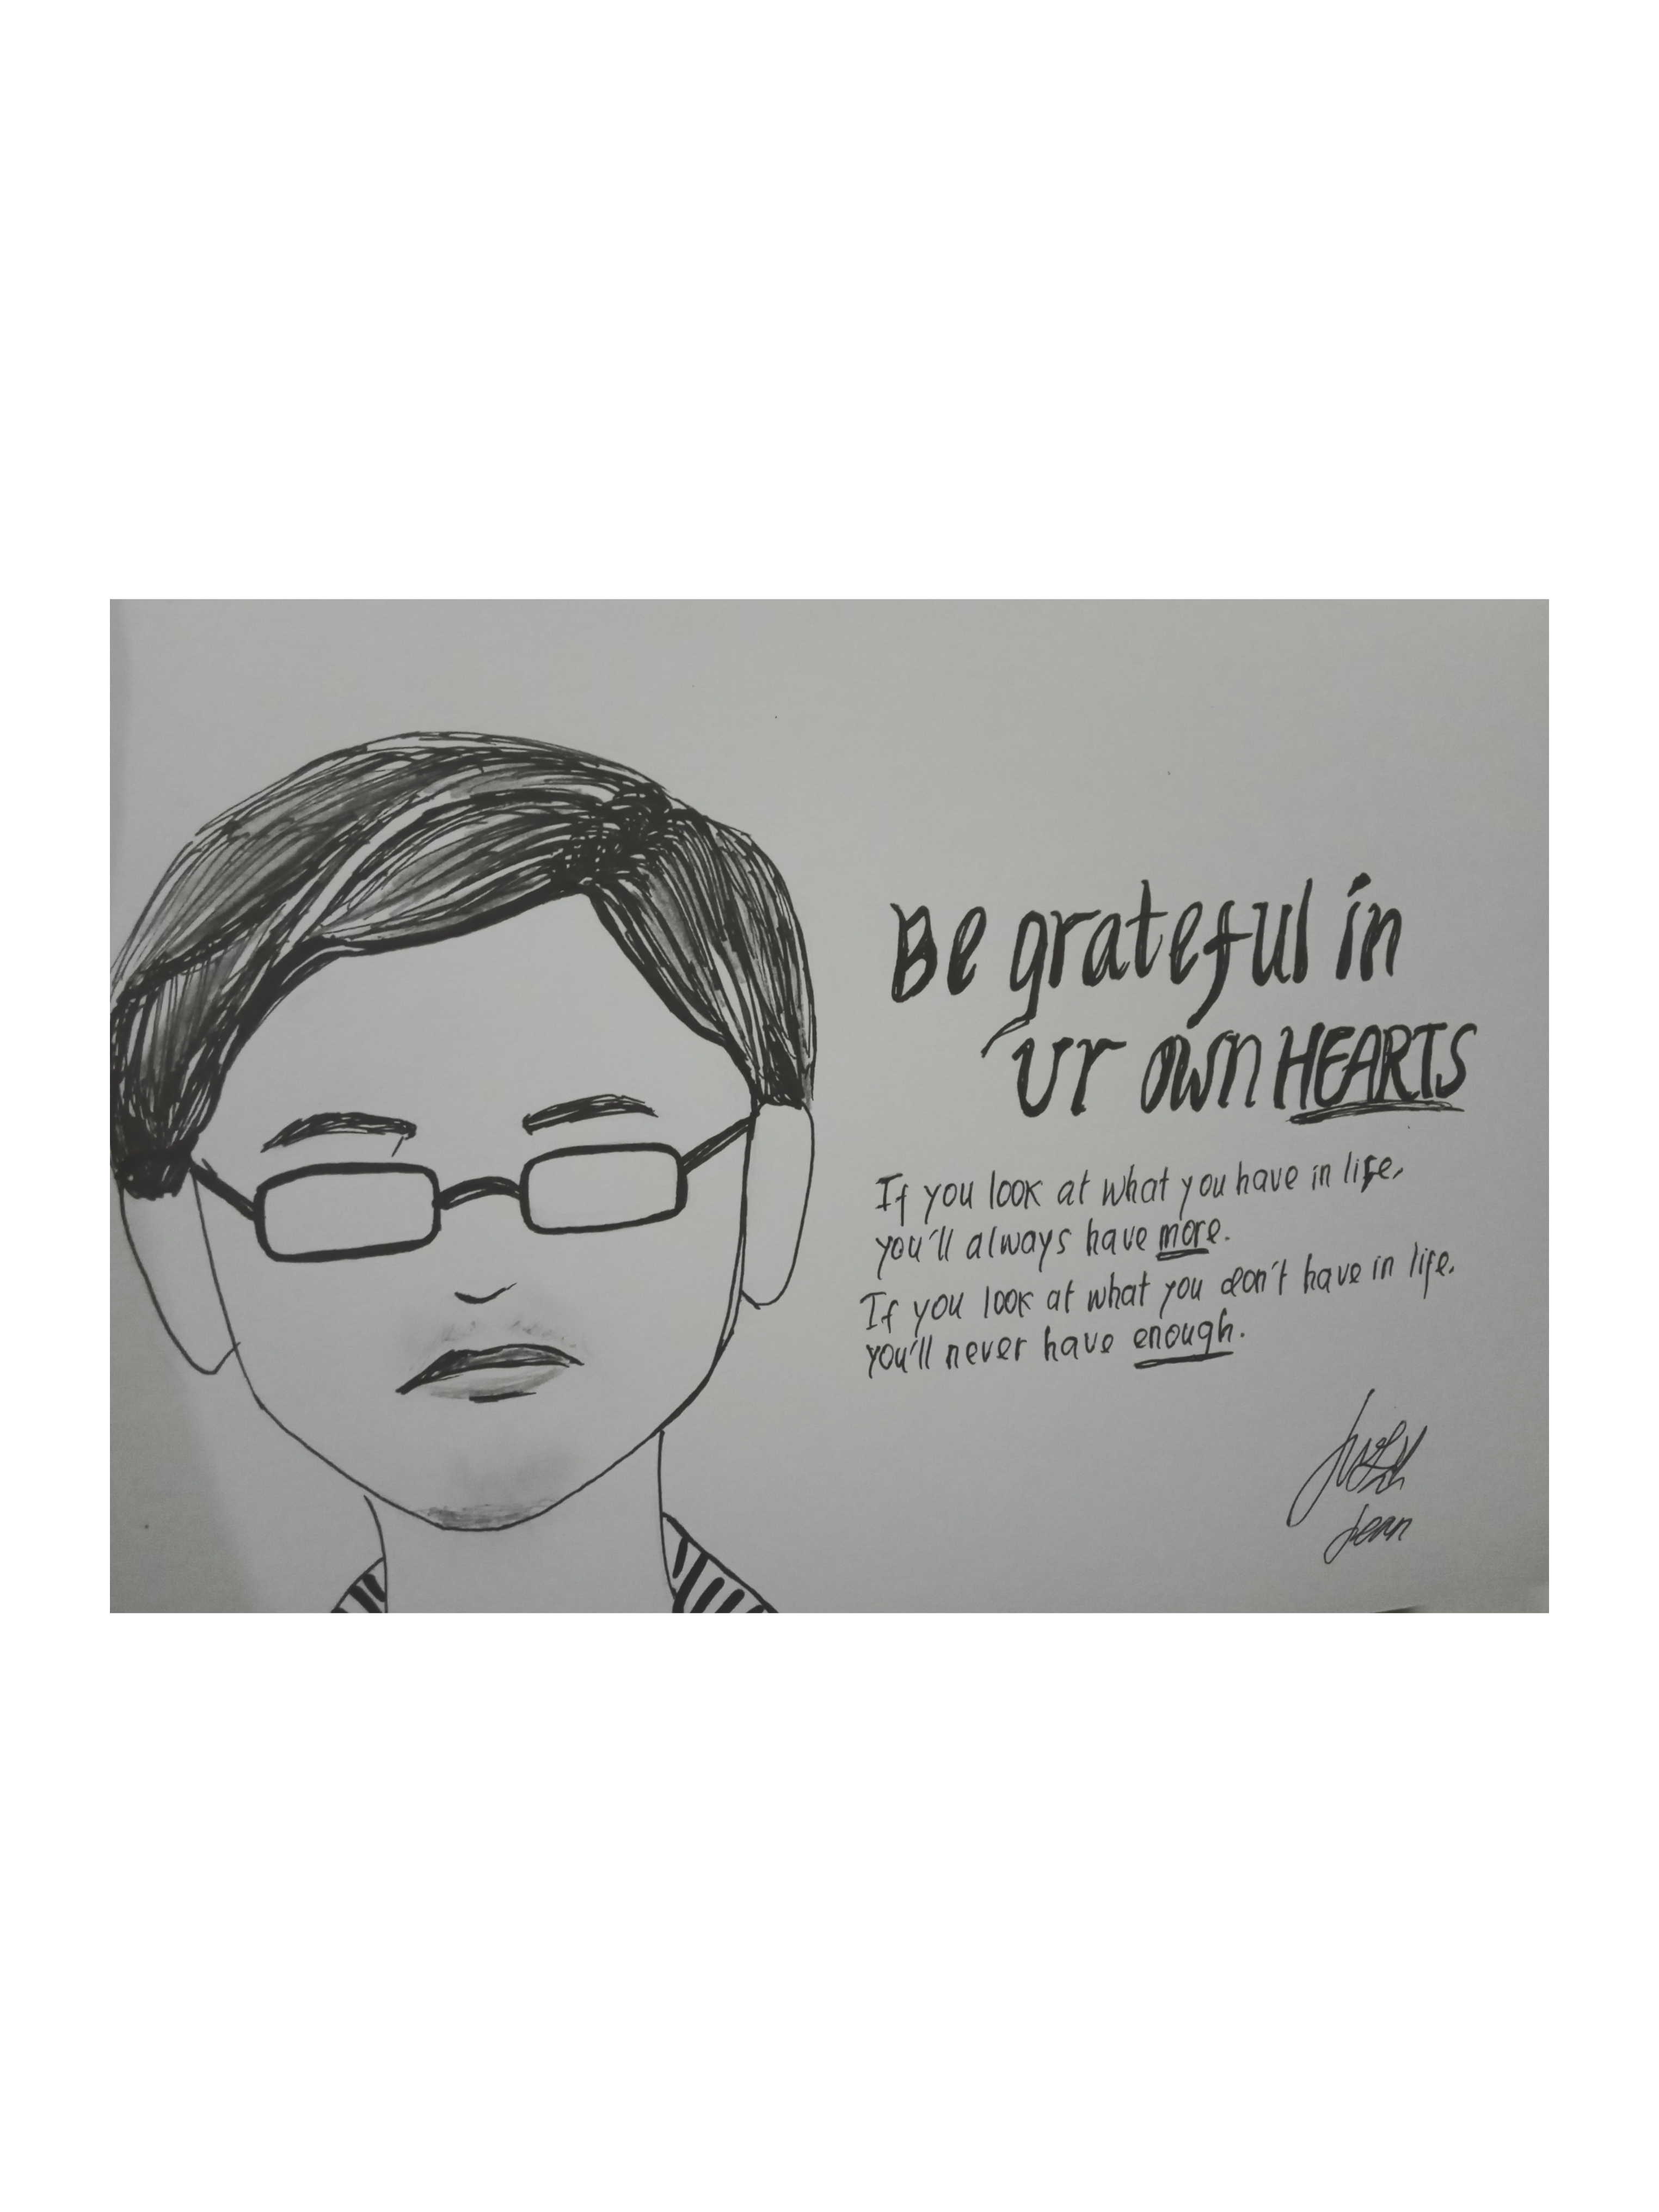 Be grateful in
ur own HEARTS
If you look at what you have in life,
you'll always have more.
If you look at what you don't have in life,
you'll never have enough.
Jean